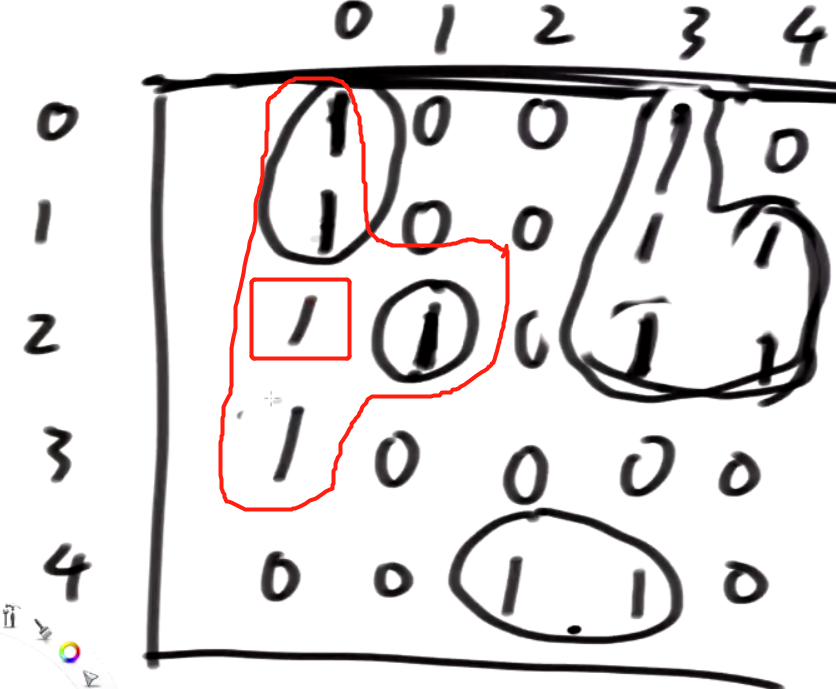 0 1 2 3 4
0 1 0 0 1 0
1 1 0 0 1 1
2 1 1 0 1 1
3 1 0 0 0 0
4 0 0 1 1 0